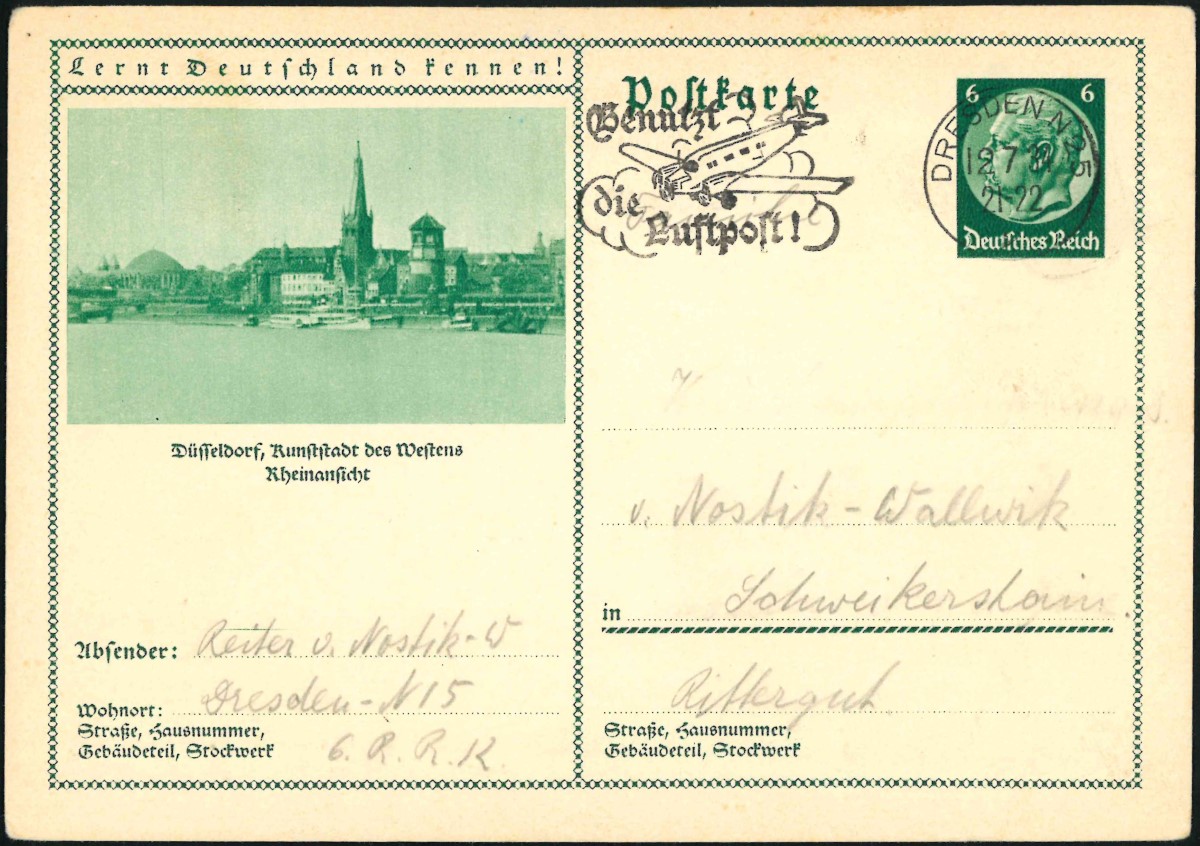 Lernt Deutschland kennen!
Düsseldorf, Kunststadt des Westens
Rheinansicht
Absender: Reiter v. Nostik-W
Wohnort: Dresden-N15
Straße, Hausnummer,
Gebäudeteil, Stockwerk
6. R. R. K.
Postkarte
Benutzt
die
Luftpost!
6 6
DRESDEN N 25
12.7.
21-22
Deutsches Reich
v. Nostik-Wallwik
in Schweikershain.
Rittergut
Straße, Hausnummer,
Gebäudeteil, Stockwerk